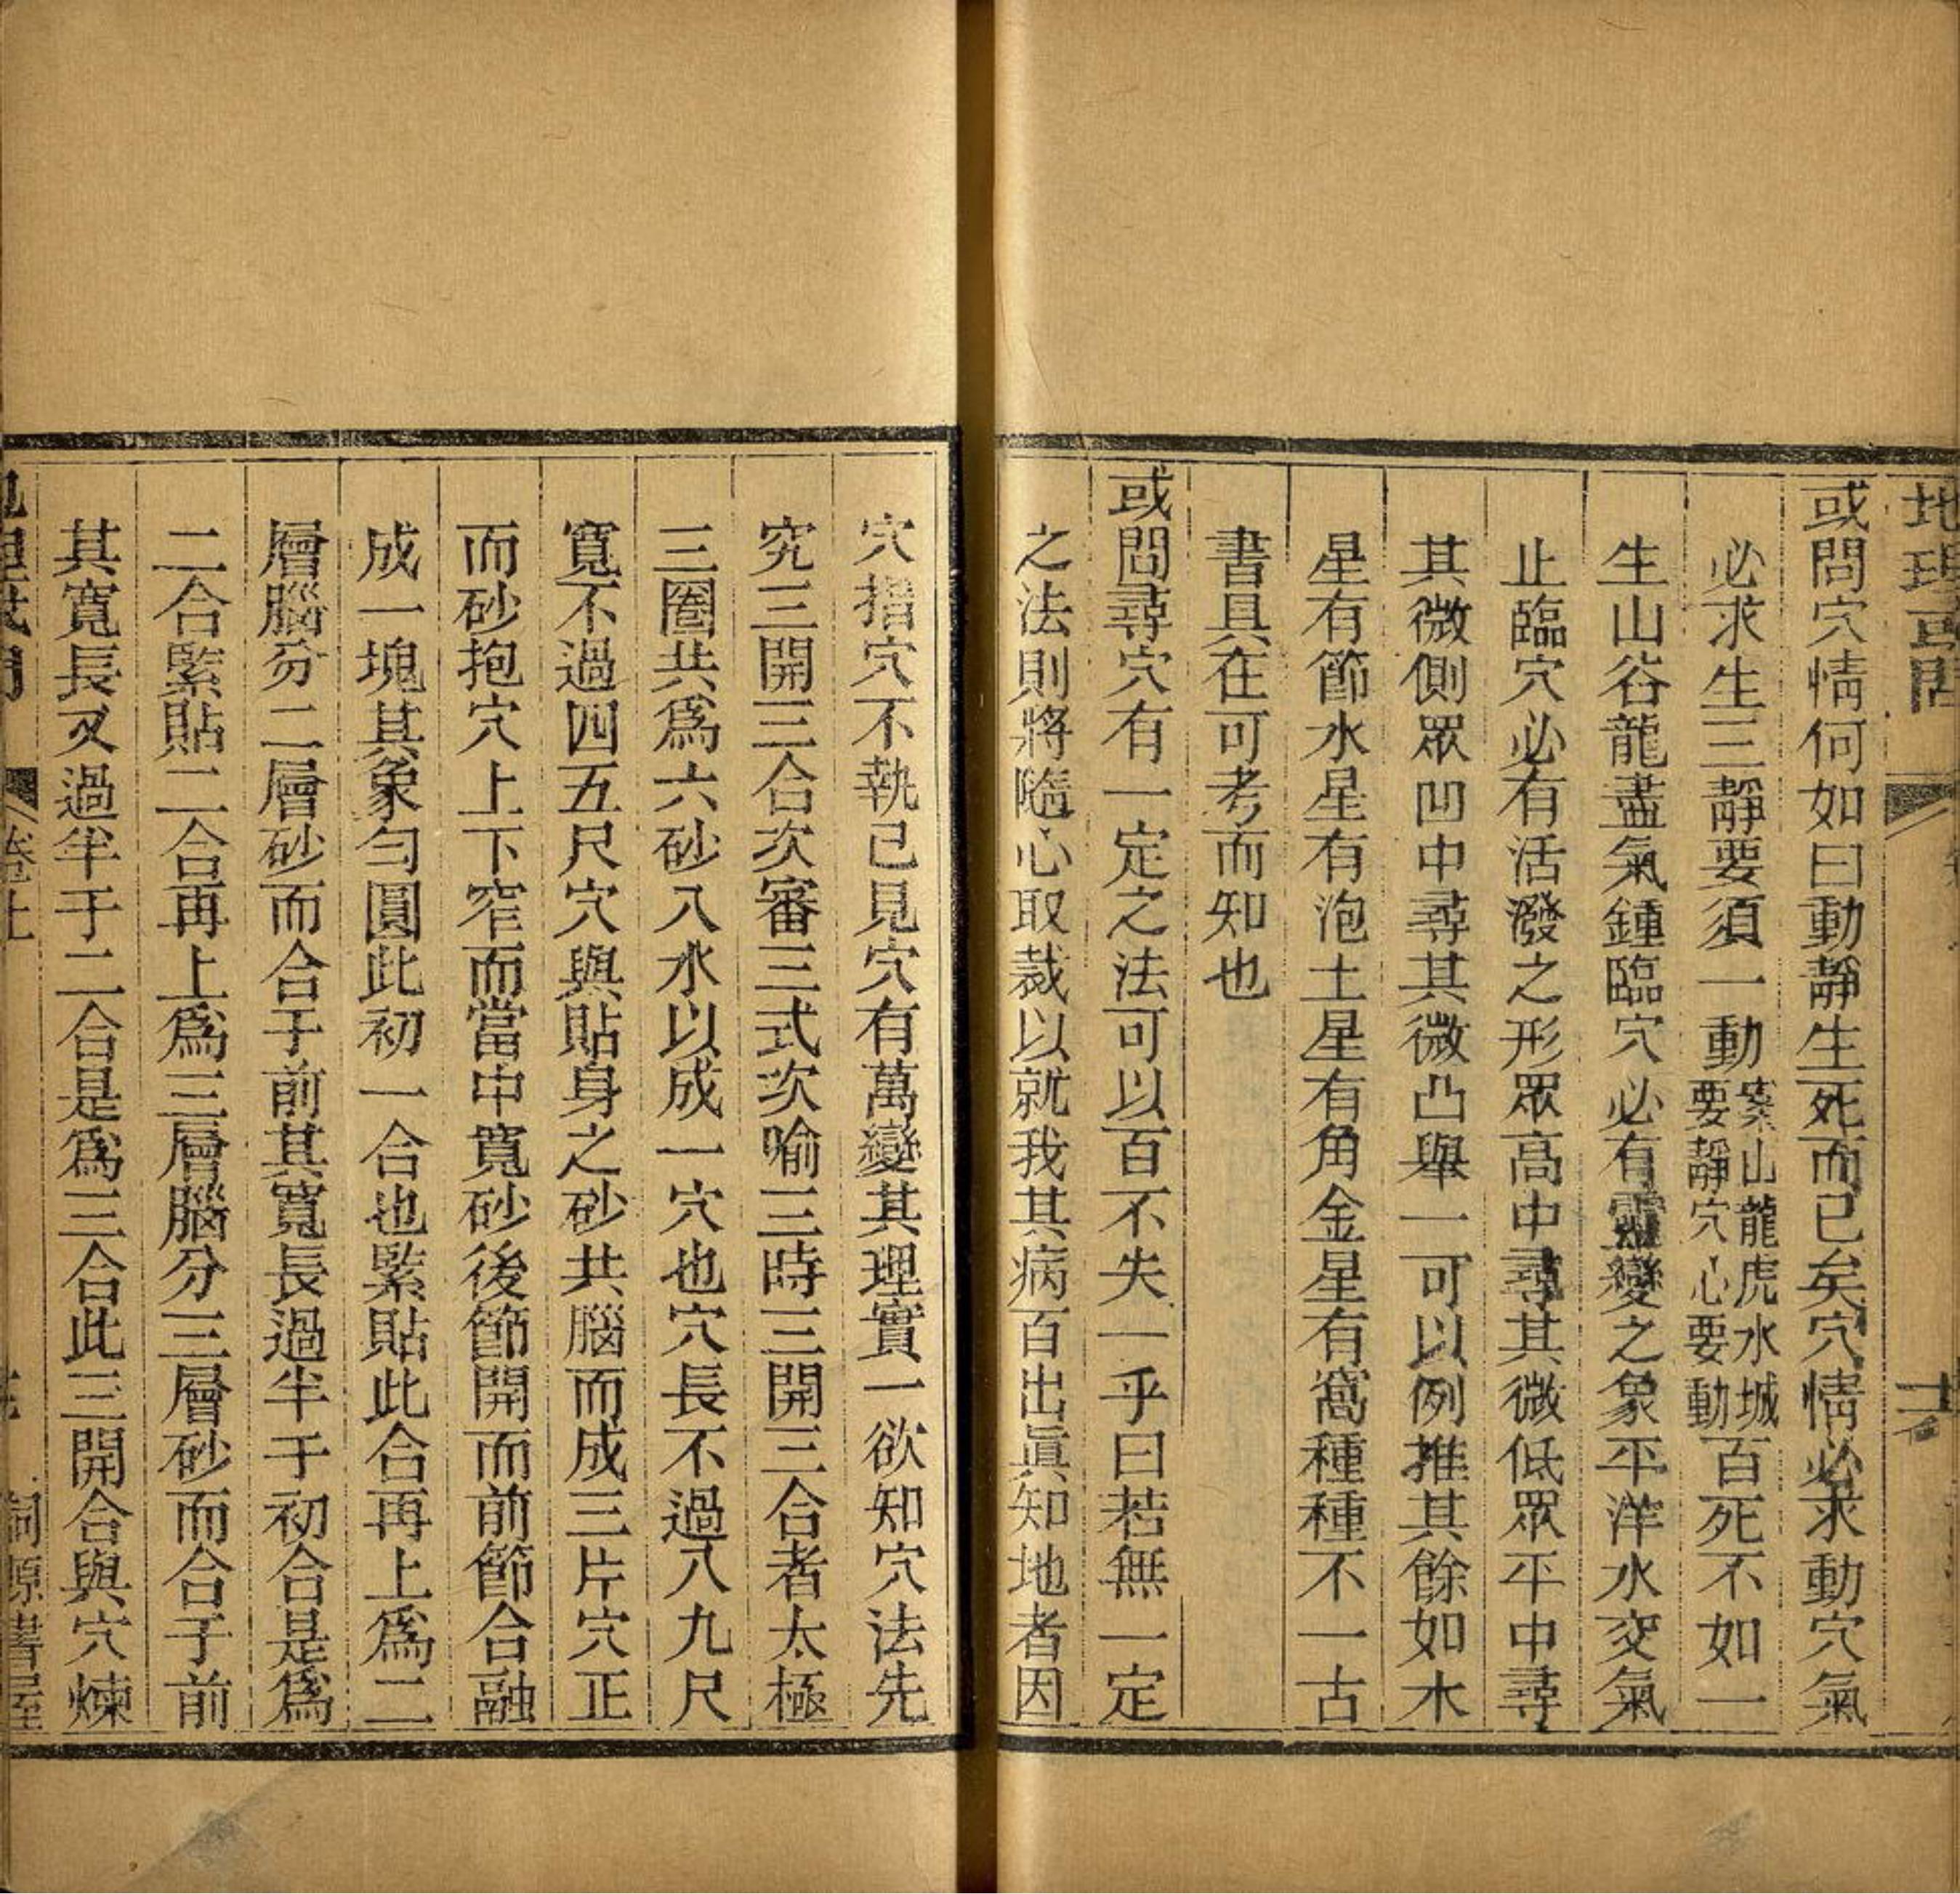 地理或問
或問穴情何如曰動靜生死而已矣穴情必求動穴氣
必求生三靜要須一動案山龍虎水城要靜穴心要動百死不如一
生山谷龍盡氣鍾臨穴必有靈變之象平洋水交氣
止臨穴必有活潑之形眾高中尋其微低眾平中尋
其微側眾凹中尋其微凸舉一可以例推其餘如木
星有節水星有泡土星有角金星有窩種種不一古
書具在可考而知也
或問尋穴有一定之法可以百不失一乎曰若無一定
之法則將隨心取裁以就我其病百出眞知地者因
穴指穴不執已見穴有萬變其理實一欲知穴法先
究三開三合次審三式次喻三時三開三合者太極
三圈共爲六砂八水以成一穴也穴長不過八九尺
寬不過四五尺穴與貼身之砂共腦而成三片穴正
而砂抱穴上下窄而當中寬砂後節開而前節合融
成一塊其象勻圓此初一合也緊貼此合再上爲二
層腦分二層砂而合于前其寬長過半于初合是爲
二合緊貼二合再上爲三層腦分三層砂而合于前
其寬長又過半于二合是爲三合此三開合與穴煉
卷上
詞源書屋